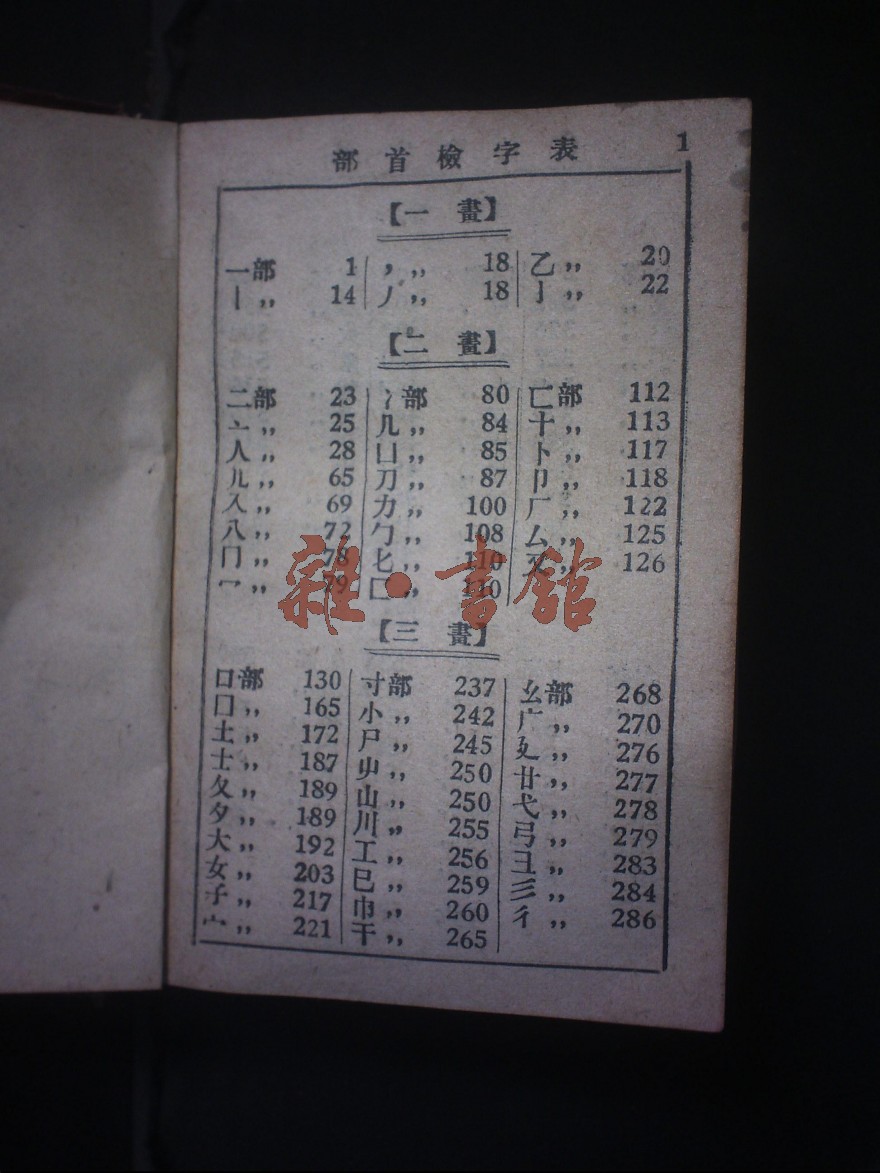 部首檢字表 1
【一畫】
一部 1 丶〃 18 乙〃 20
丨〃 14 丿〃 18 亅〃 22
【二畫】
二部 23 冫部 80 匸部 112
亠〃 25 几〃 84 十〃 113
人〃 28 凵〃 85 卜〃 117
儿〃 65 刀〃 87 卩〃 118
入〃 69 力〃 100 厂〃 122
八〃 72 勹〃 108 厶〃 125
冂〃 78 匕〃 110 又〃 126
冖〃 79 匚〃 110
雜·書館
【三畫】
口部 130 寸部 237 幺部 268
囗〃 165 小〃 242 广〃 270
土〃 172 尸〃 245 廴〃 276
士〃 187 屮〃 250 廾〃 277
夂〃 189 山〃 250 弋〃 278
夕〃 189 川〃 255 弓〃 279
大〃 192 工〃 256 彐〃 283
女〃 203 巳〃 259 彡〃 284
子〃 217 巾〃 260 彳〃 286
宀〃 221 干〃 265